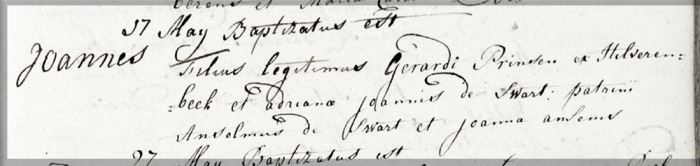 et Maria
27 May Baptizatus est
Joannes
Filius legitimus Gerardi Prinsen ex Hilseren-
-beek et adriana Joannis de Swart: patrini
Anselmus de Swart et Joanna ansems
27 May Baptizatus est